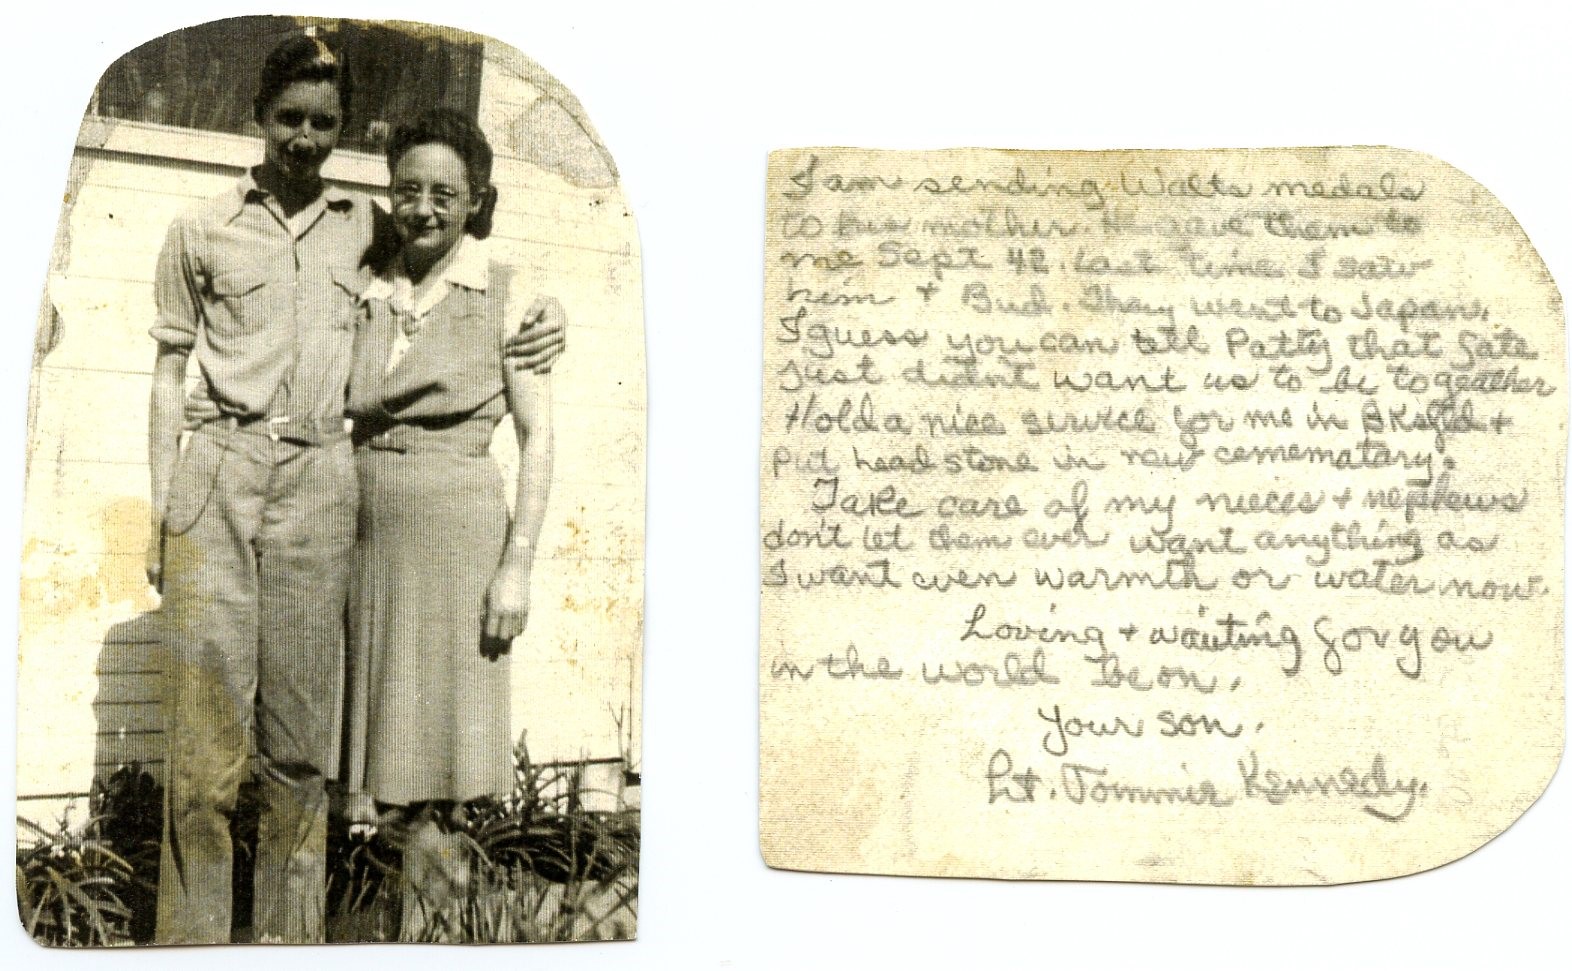 I am sending Walts medals
to his mother. He gave them to
me Sept 42. Last time I saw
him + Bud. They went to Japan.
I guess you can tell Patty that fate
Just didn't want us to be togeather
Hold a nice service for me in Bksfld +
put head stone in new cemematary.
Take care of my nieces + nephews
don't let them ever want anything as
I want even warmth or water now.
Loving + waiting for you
in the world beon.
Your son.
Lt. Tommie Kennedy.